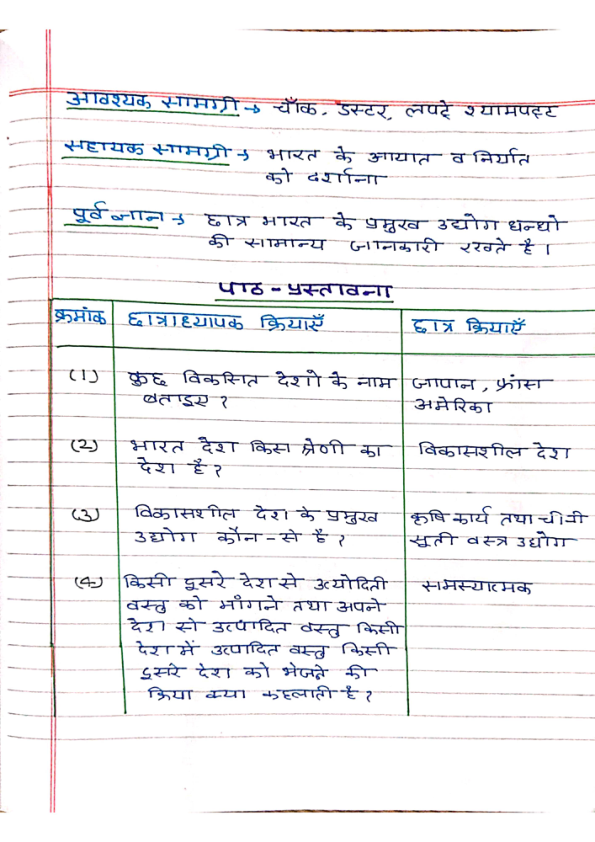 आवश्यक सामग्री → चॉक, डस्टर, लपटे श्यामपट्ट
सहायक सामग्री → भारत के आयात व निर्यात
को दर्शाना
पूर्व ज्ञान → छात्र भारत के प्रमुख उद्योग धन्धो
की सामान्य जानकारी रखते है।
पाठ - प्रस्तावना
क्रमांक छात्राध्यापक क्रियाएँ छात्र क्रियाएँ
(1) कुछ विकसित देशो के नाम जापान, फ्रांस
बताइए ? अमेरिका
(2) भारत देश किस श्रेणी का विकासशील देश
देश है ?
(3) विकासशील देश के प्रमुख कृषि कार्य तथा चीनी
उद्योग कौन-से है ? सूती वस्त्र उद्योग
(4) किसी दूसरे देश से उत्योदिती समस्यात्मक
वस्तु को माँगने तथा अपने
देश से उत्पादित वस्तु किसी
देश में उत्पादित वस्तु किसी
दूसरे देश को भेजने की
क्रिया क्या कहलाती है ?